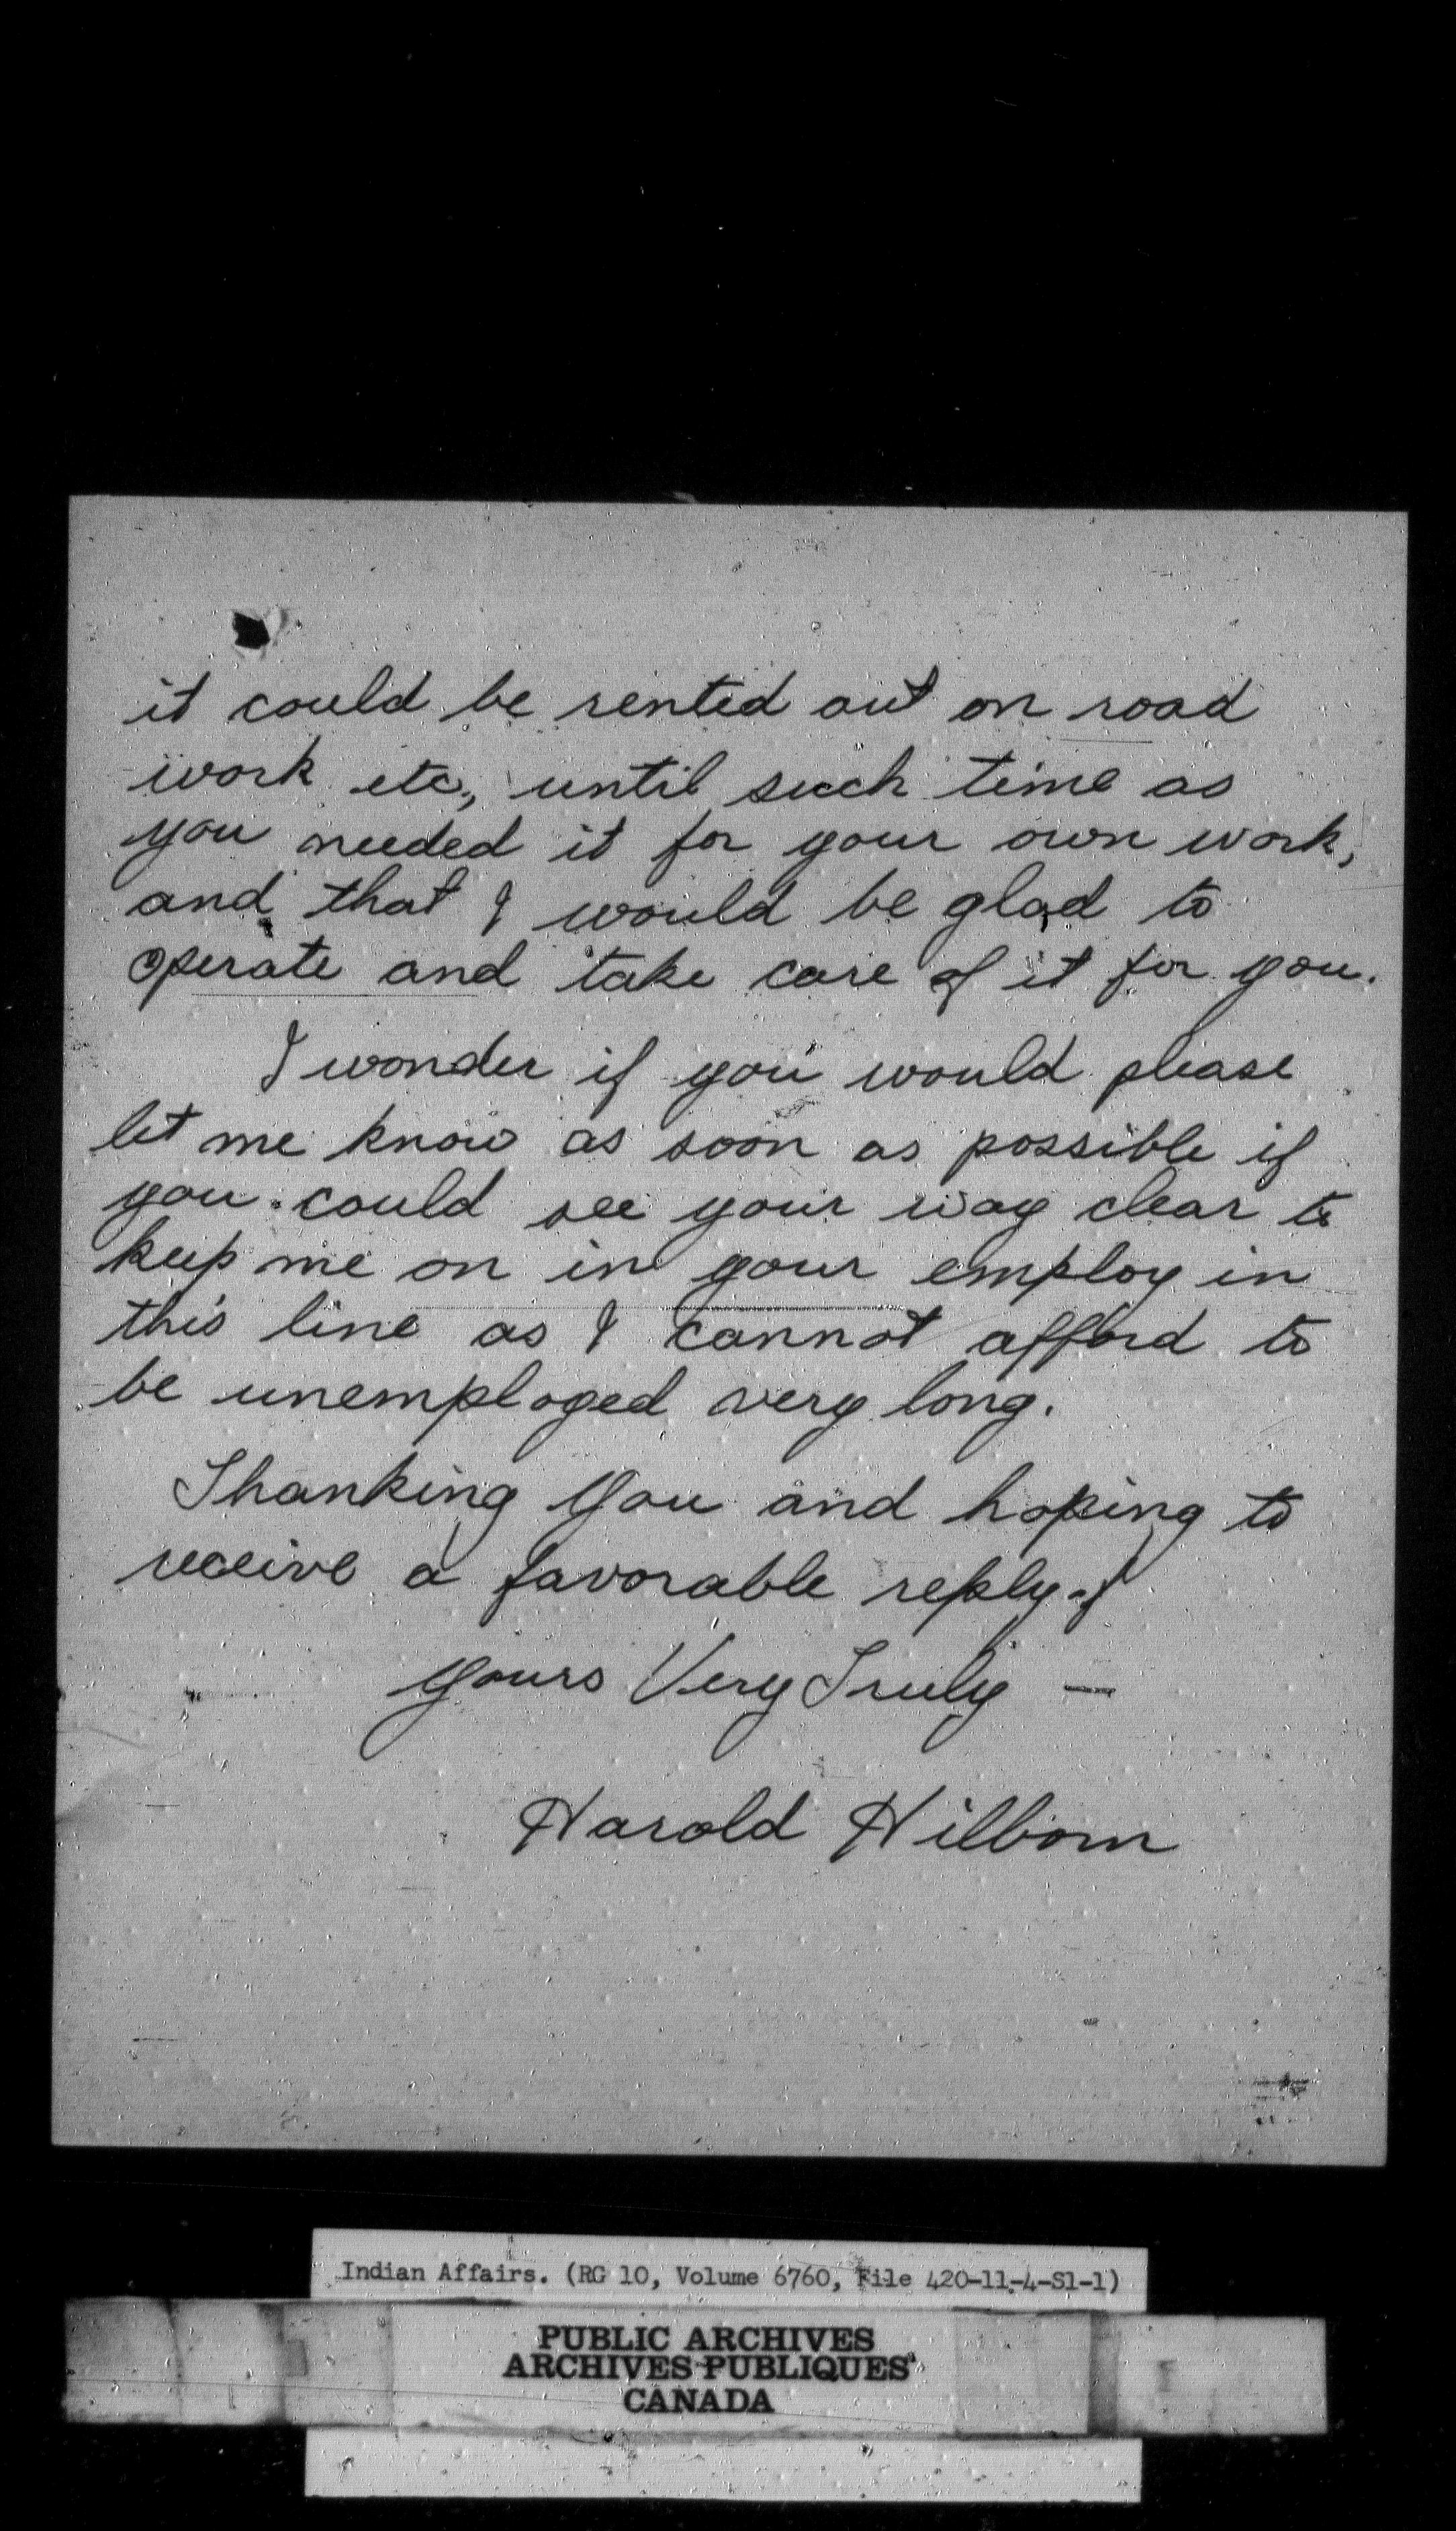 it could be rented out on road
work etc., until such time as
you needed it for your own work,
and that I would be glad to
operate and take care of it for you.
I wonder if you would please
let me know as soon as possible if
you could see your way clear to
keep me on in your employ in
this line as I cannot afford to
be unemployed very long.
Thanking You and hoping to
receive a favorable reply,
Yours Very Truly —
Harold Hilborn
Indian Affairs. (RG 10, Volume 6760, File 420-11-4-S1-1)
PUBLIC ARCHIVES
ARCHIVES PUBLIQUES
CANADA